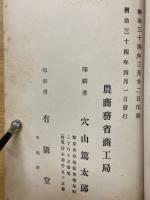 明治三十四年三月廿二日印刷
明治三十四年四月一日發行
農商務省商工局
印刷者
穴山篤太郎
印刷所
有隣堂